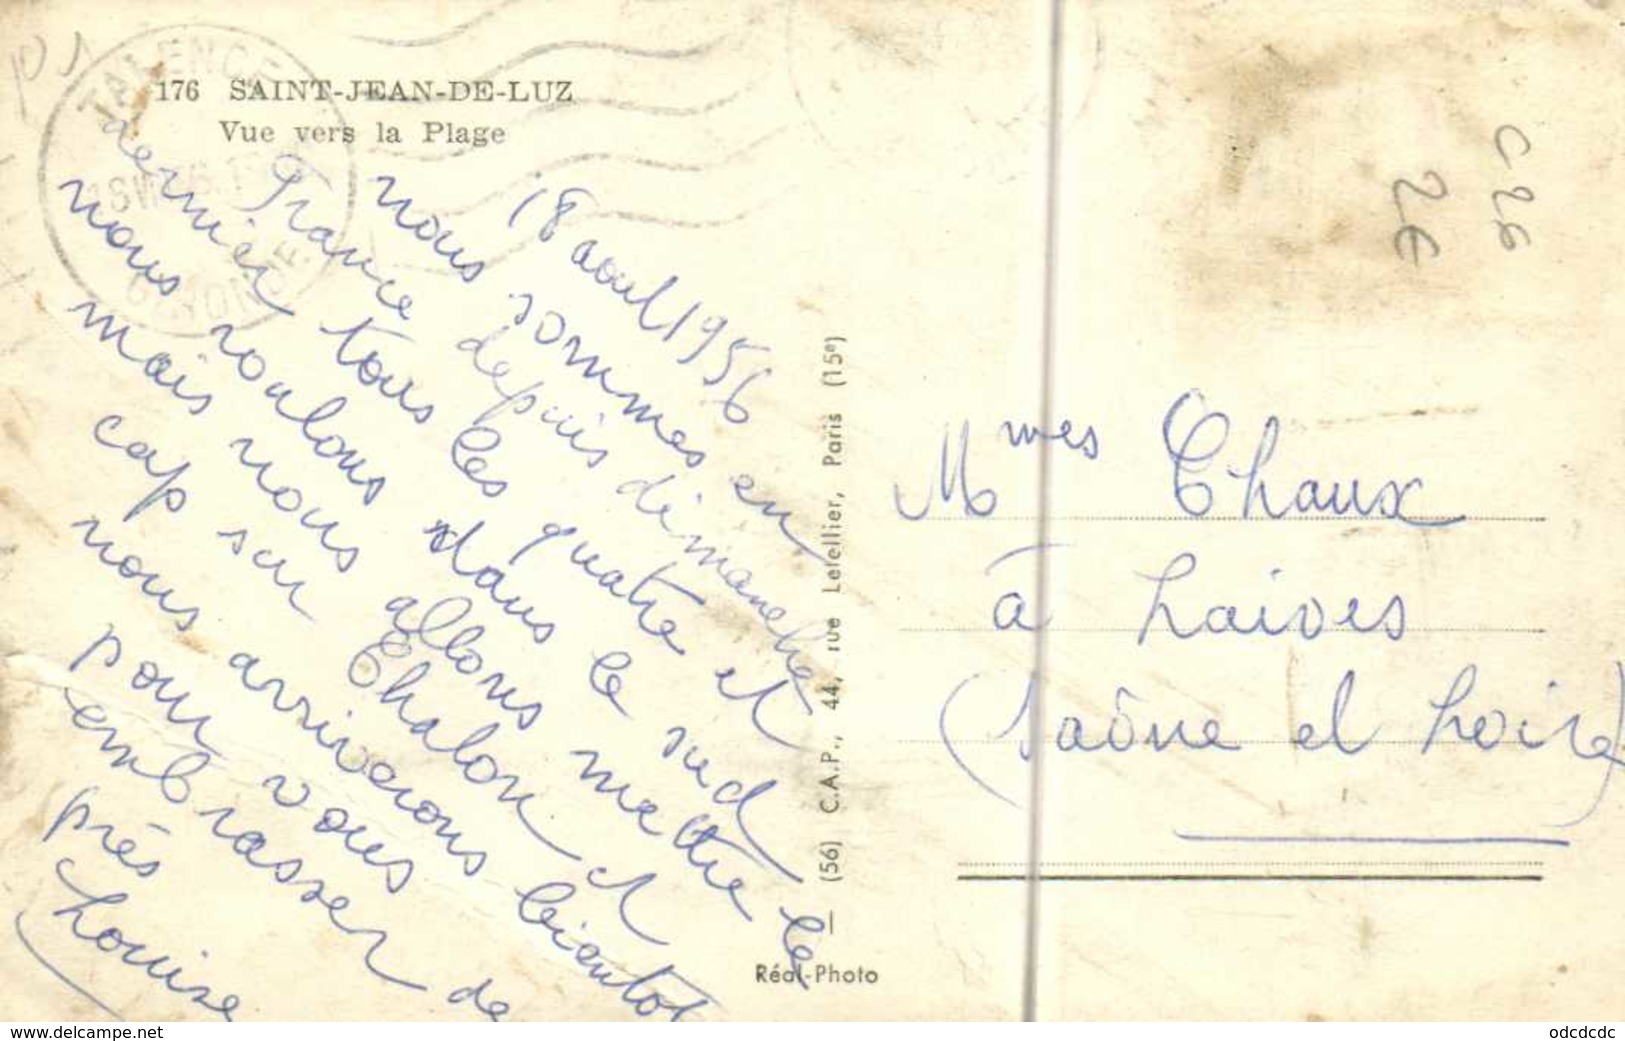 176 SAINT-JEAN-DE-LUZ
Vue vers la Plage
18 aout 1956
nous sommes en
France depuis dimanche
dernier tous les quatre et
nous roulons dans le sud
mais nous allons mettre le
cap sur Chalon et
nous arriverons bientot
pour vous
embrasser de
près
Louise
(56) C.A.P., 44, rue Letellier, Paris (15e)
Réal-Photo
C26
2€
Mmes Chaux
à Laives
(Saône et Loire)
www.delcampe.net
odcdcdc